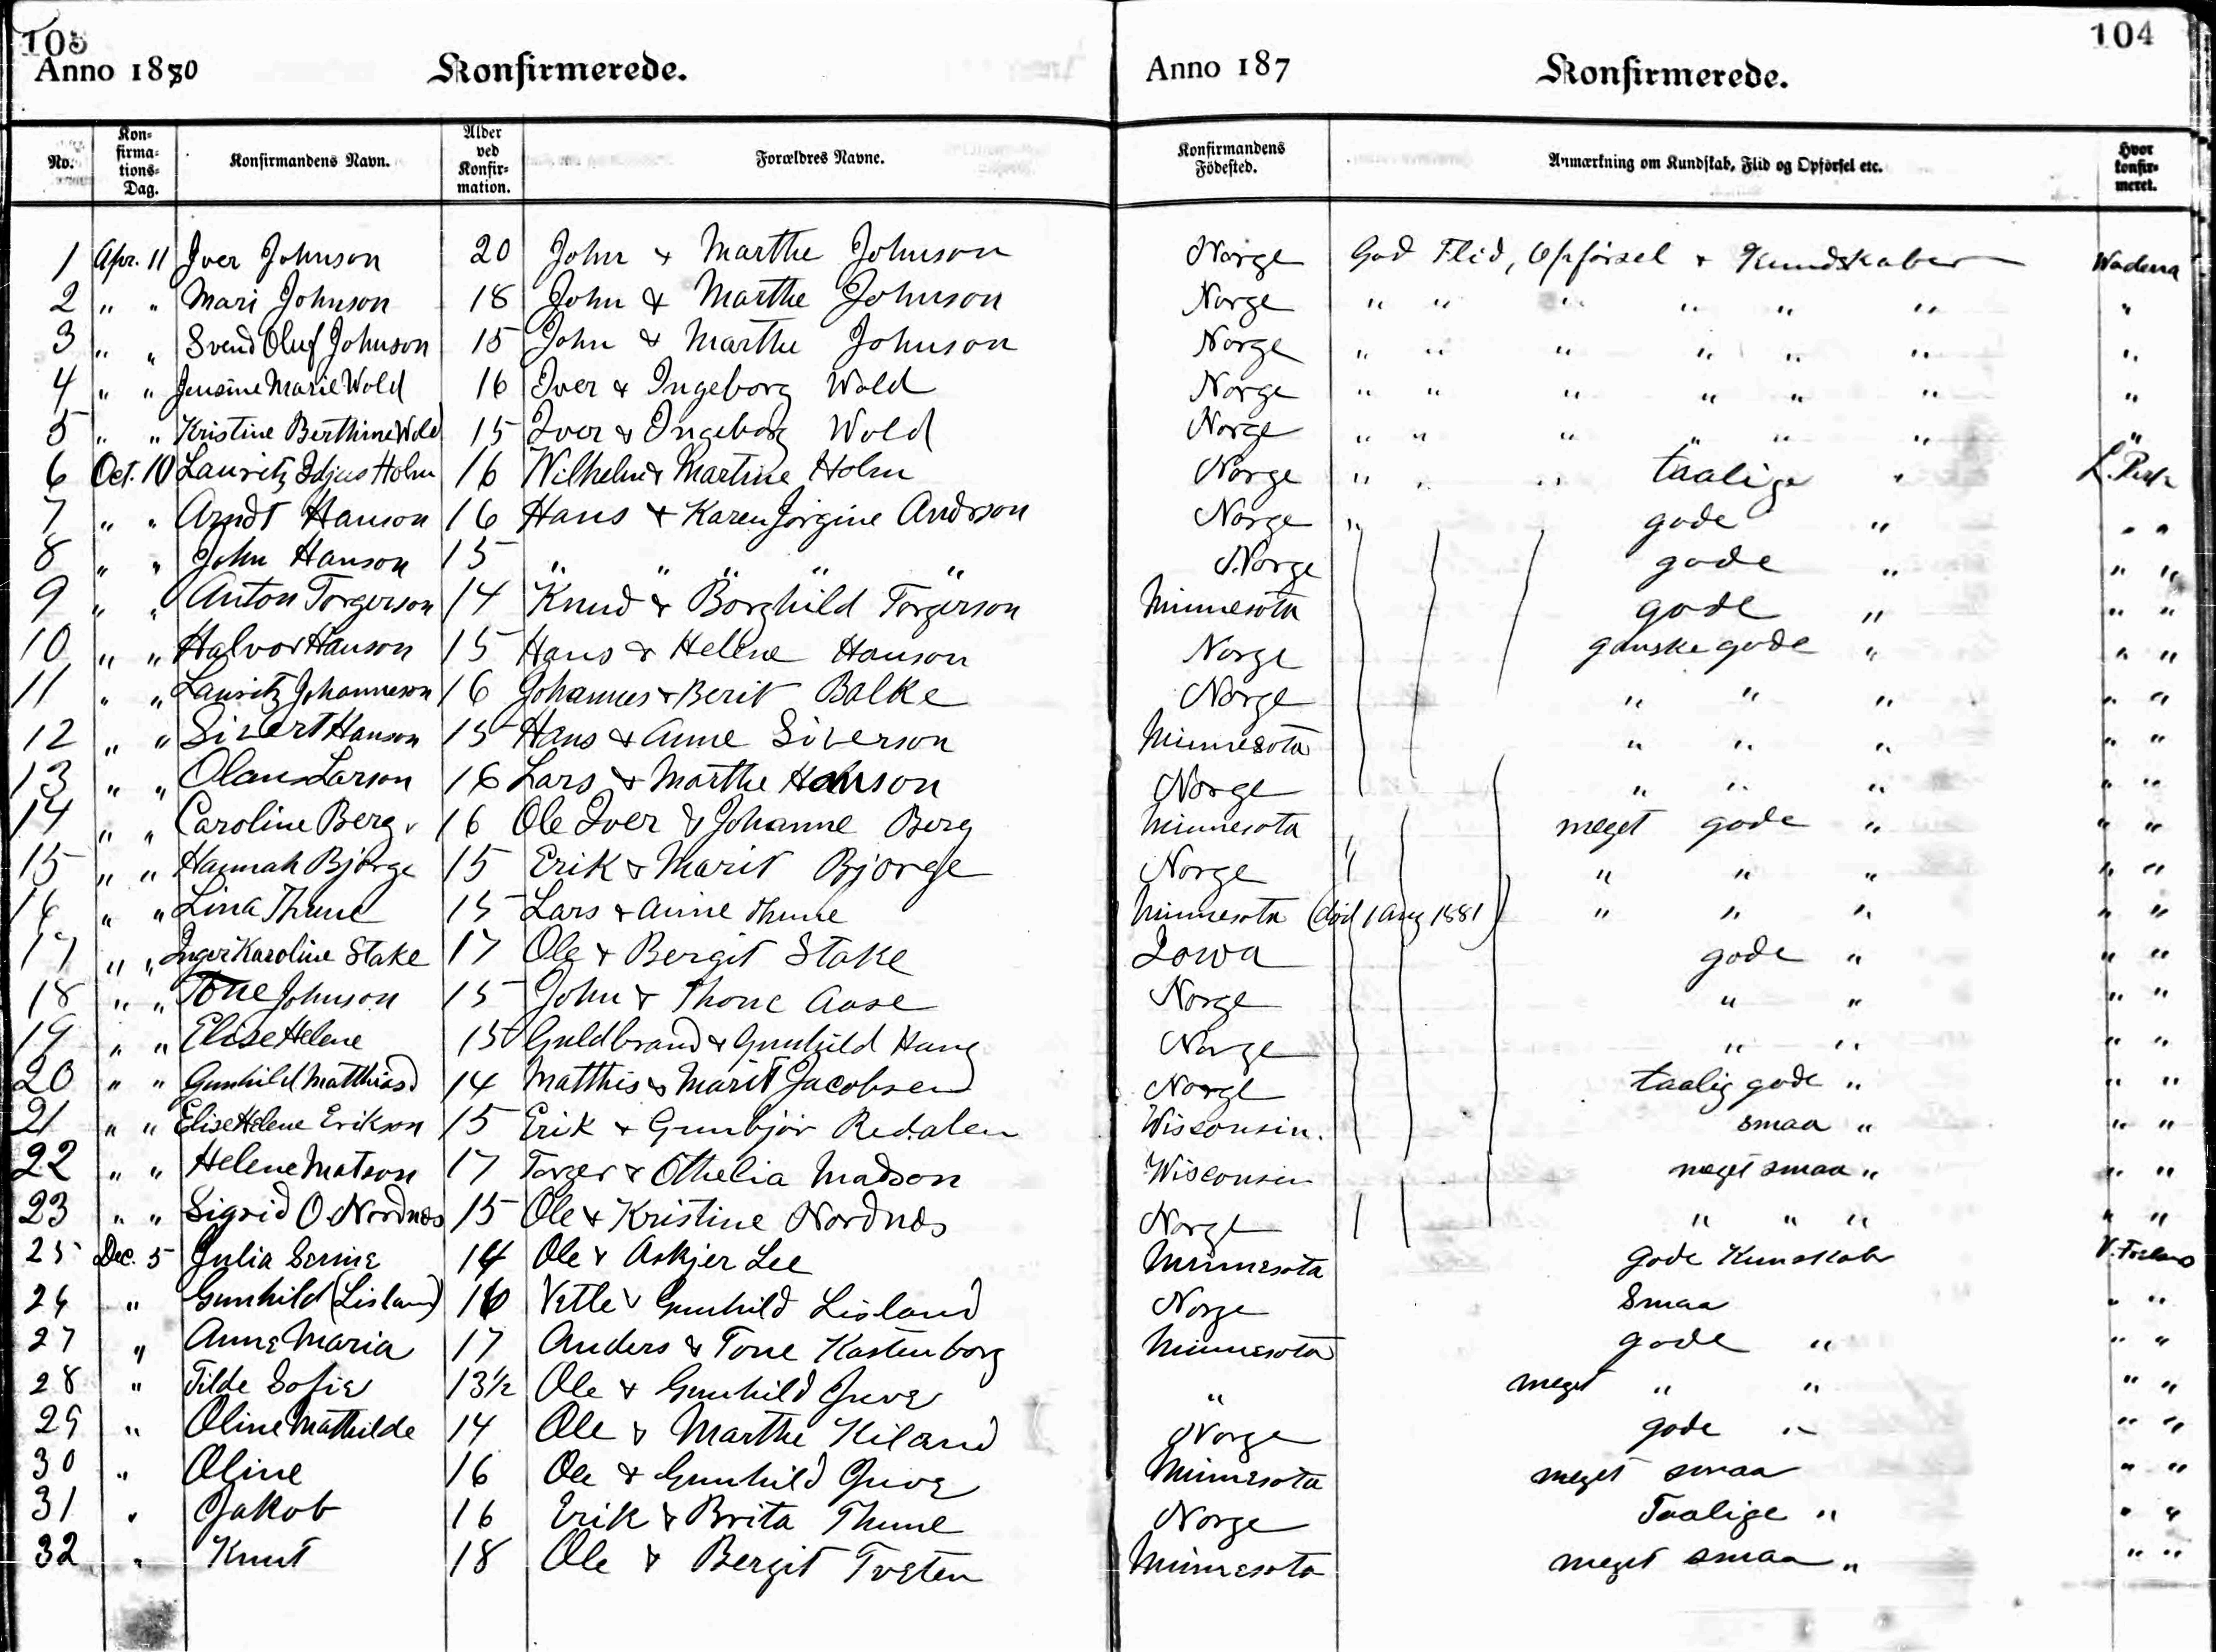 103 104
Anno 1880 Konfirmerede. Anno 187 Konfirmerede.
No. Kon=firma=tions=Dag. Konfirmandens Navn. Alder ved Konfir=mation. Forældres Navne. Konfirmandens Födested. Anmærkning om Kundskab, Flid og Opförsel etc. Hvor konfir=meret.
1 Apr. 11 Iver Johnson 20 John & Marthe Johnson Norge God Flid, Opförsel & Kundskaber Wadena
2 " " Mari Johnson 18 John & Marthe Johnson Norge " " " " " " "
3 " " Svend Oluf Johnson 15 John & Marthe Johnson Norge " " " " " " "
4 " " Jensine Marie Wold 16 Iver & Ingeborg Wold Norge " " " " " " "
5 " " Kristine Berthine Wold 15 Iver & Ingeborg Wold Norge " " " " " " "
6 Oct. 10 Lauritz Holm 16 Wilhelm & Martine Holm Norge " " " taalige " L. Park
7 " " Arndt Hanson 16 Hans & Karen Jörgine Andrson Norge " gode " " "
8 " " John Hanson 15 " " " " " Norge gode " " "
9 " " Anton Torgerson 14 Knud & Borghild Torgerson Minnesota gode " " "
10 " " Halvor Hanson 15 Hans & Hellene Hanson Norge ganske gode " " "
11 " " Lauritz Johanneson 16 Johannes & Berit Balke Norge " " " " "
12 " " Sivert Hanson 15 Hans & Anne Siverson Minnesota " " " " "
13 " " Olaus Larson 16 Lars & Marthe Hanson Norge " " " " "
14 " " Caroline Berg 16 Ole Iver & Johanne Berg Minnesota meget gode " " "
15 " " Hannah Björge 15 Erik & Marit Bjorge Norge " " " " "
16 " " Lina Thune 15 Lars & Anne Thune Minnesota (död 1 Aug 1881) " " " " "
17 " " Inger Karoline Stake 17 Ole & Bergit Stake Iowa gode " " "
18 " " Tone Johnson 15 John & Thone Aase Norge " " " "
19 " " Elise Helene 15 Guldbrand & Gunhild Haug Norge " " " "
20 " " Gunhild Matthiasd 14 Matthis & Marit Jacobsen Norge taalig gode " " "
21 " " Elise Helene Erikson 15 Erik & Gunbjör Redalen Wisconsin. smaa " " "
22 " " Helene Matson 17 Torger & Othelia Madson Wisconsin meget smaa " " "
23 " " Sigrid O. Nordnes 15 Ole & Kristine Nordnes Norge " " " " "
25 Dec. 5 Julia 14 Ole & Askjer Lee Minnesota gode Kunskab
26 " Gunhild (Lisland) 16 Vetle & Gunhild Lisland Norge Smaa " "
27 " Anne Maria 17 Anders & Tone Kastenborg Minnesota gode " " "
28 " Tilde Sofie 13½ Ole & Gunhild Juve " meget " " " "
29 " Oline Mathilde 14 Ole & Marthe Kiland Norge gode " " "
30 " Oline 16 Ole & Gunhild Juve Minnesota meget smaa " "
31 " Jakob 16 Erik & Brita Thune Norge Taalige " " "
32 " Knut 18 Ole & Bergit Tveten Minnesota meget smaa " " "